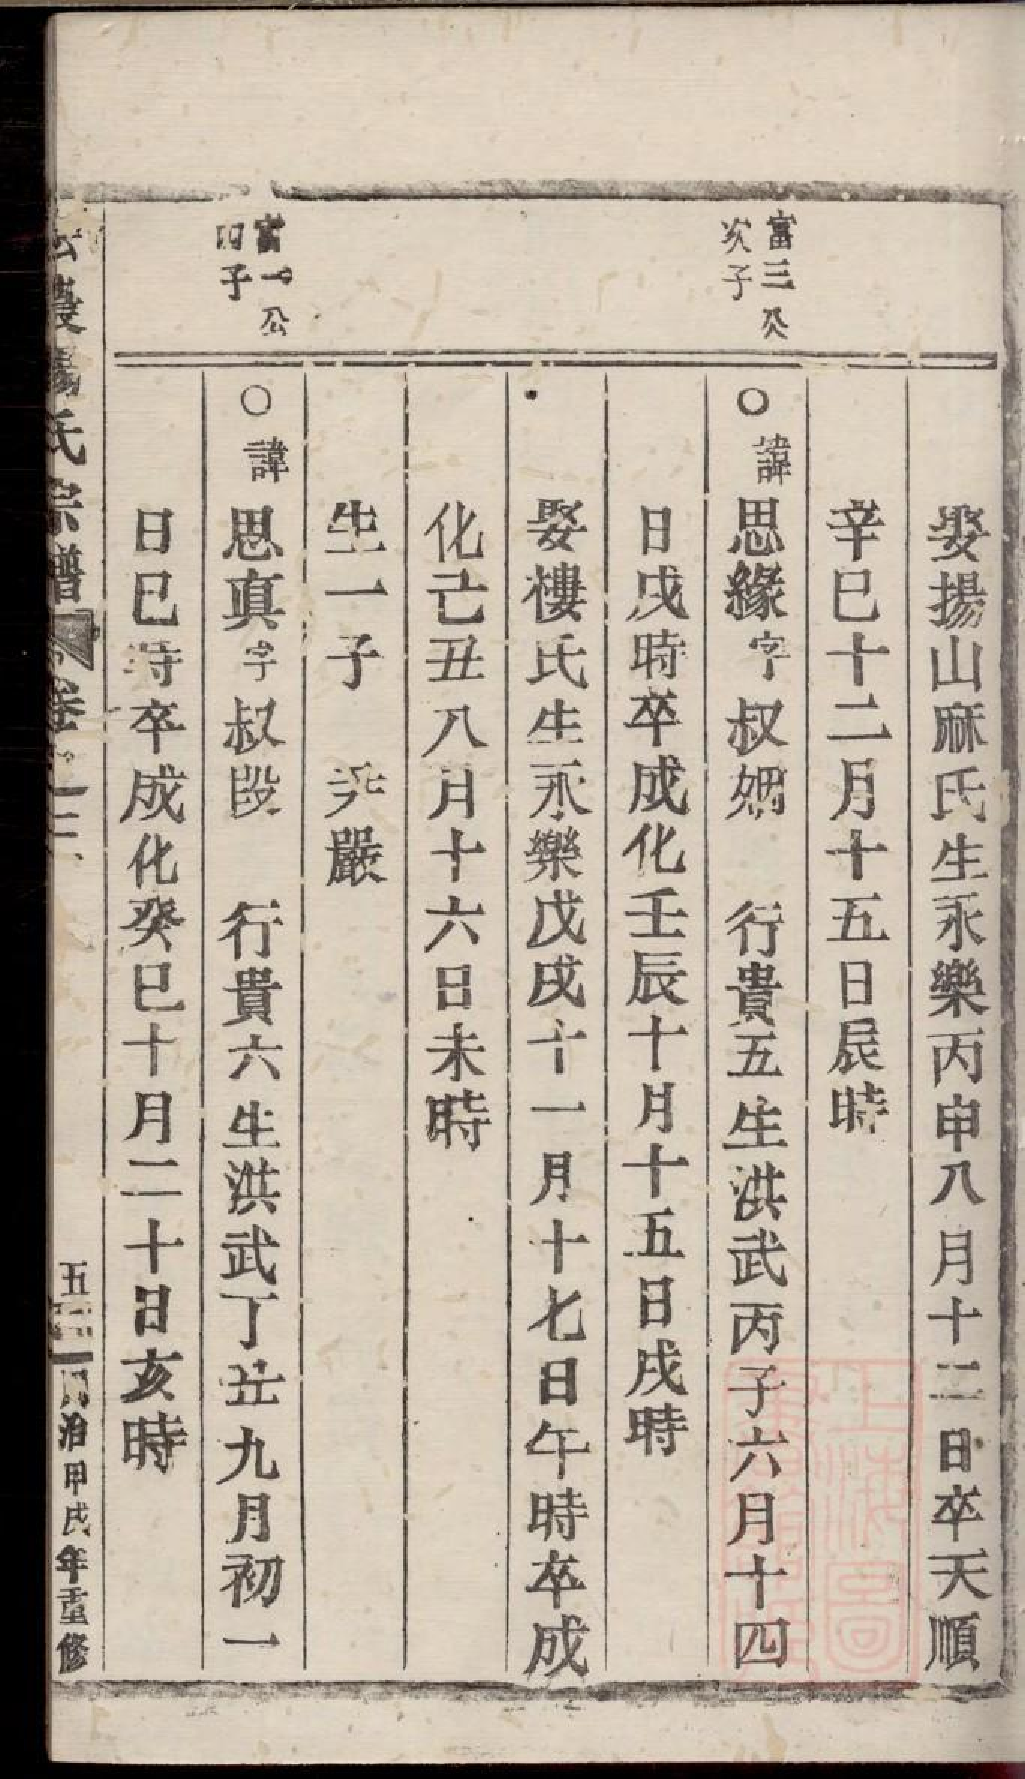 娶揚山麻氏生永樂丙申八月十二日卒天順
辛巳十二月十五日辰時
富三公
次子
○諱思緣字叔婣 行貴五生洪武丙子六月十四
日戌時卒成化壬辰十月十五日戌時
娶樓氏生永樂戊戌十一月十七日午時卒成
化己丑八月十六日未時
生一子 嚴
富一公
四子
○諱思眞字叔段 行貴六生洪武丁丑九月初一
日巳時卒成化癸巳十月二十日亥時
氏宗譜 卷 五 治甲戌年重修